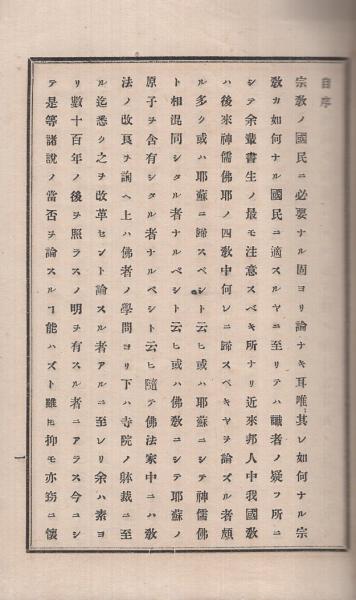 自序
宗敎ノ國民ニ必要ナル固ヨリ論ナキ耳唯其レ如何ナル宗
敎カ如何ナル國民ニ適スルヤニ至リテハ識者ノ疑フ所ニ
シテ余輩書生ノ最モ注意スベキ所ナリ近來邦人中我國敎
ハ後來神儒佛耶ノ四敎中何レニ歸スベキヤヲ論ズル者頗
ル多ク或ハ耶蘇ニ歸スベシト云ヒ或ハ耶蘇ニシテ神儒佛
ト相混同シタル者ナルベシト云ヒ或ハ佛敎ニシテ耶蘇ノ
原子ヲ含有シタル者ナルベシト云ヒ隨テ佛法家中ニハ敎
法ノ改良ヲ謀ヘ上ハ佛者ノ學問ヨリ下ハ寺院ノ躰裁ニ至
ル迄悉ク之ヲ改革セント論スル者アルニ至レリ余ハ素ヨ
リ數十百年ノ後ヲ照ラスノ明ヲ有スル者ニアラス今ニシ
テ是等諸說ノ當否ヲ論スルヿ能ハズト雖𪜈抑モ亦窃ニ懷
一